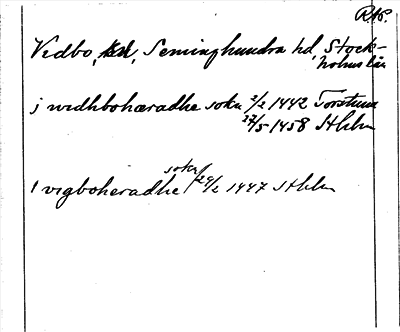 RAP.
Vidbo, Seminghundra hd, Stock-
holms län
j widhbohæradhe sokn 2/2 1442 Torstuna
27/5 1458 Sthlm
I vigboheradhe sokn 29/2 1447 Sthlm